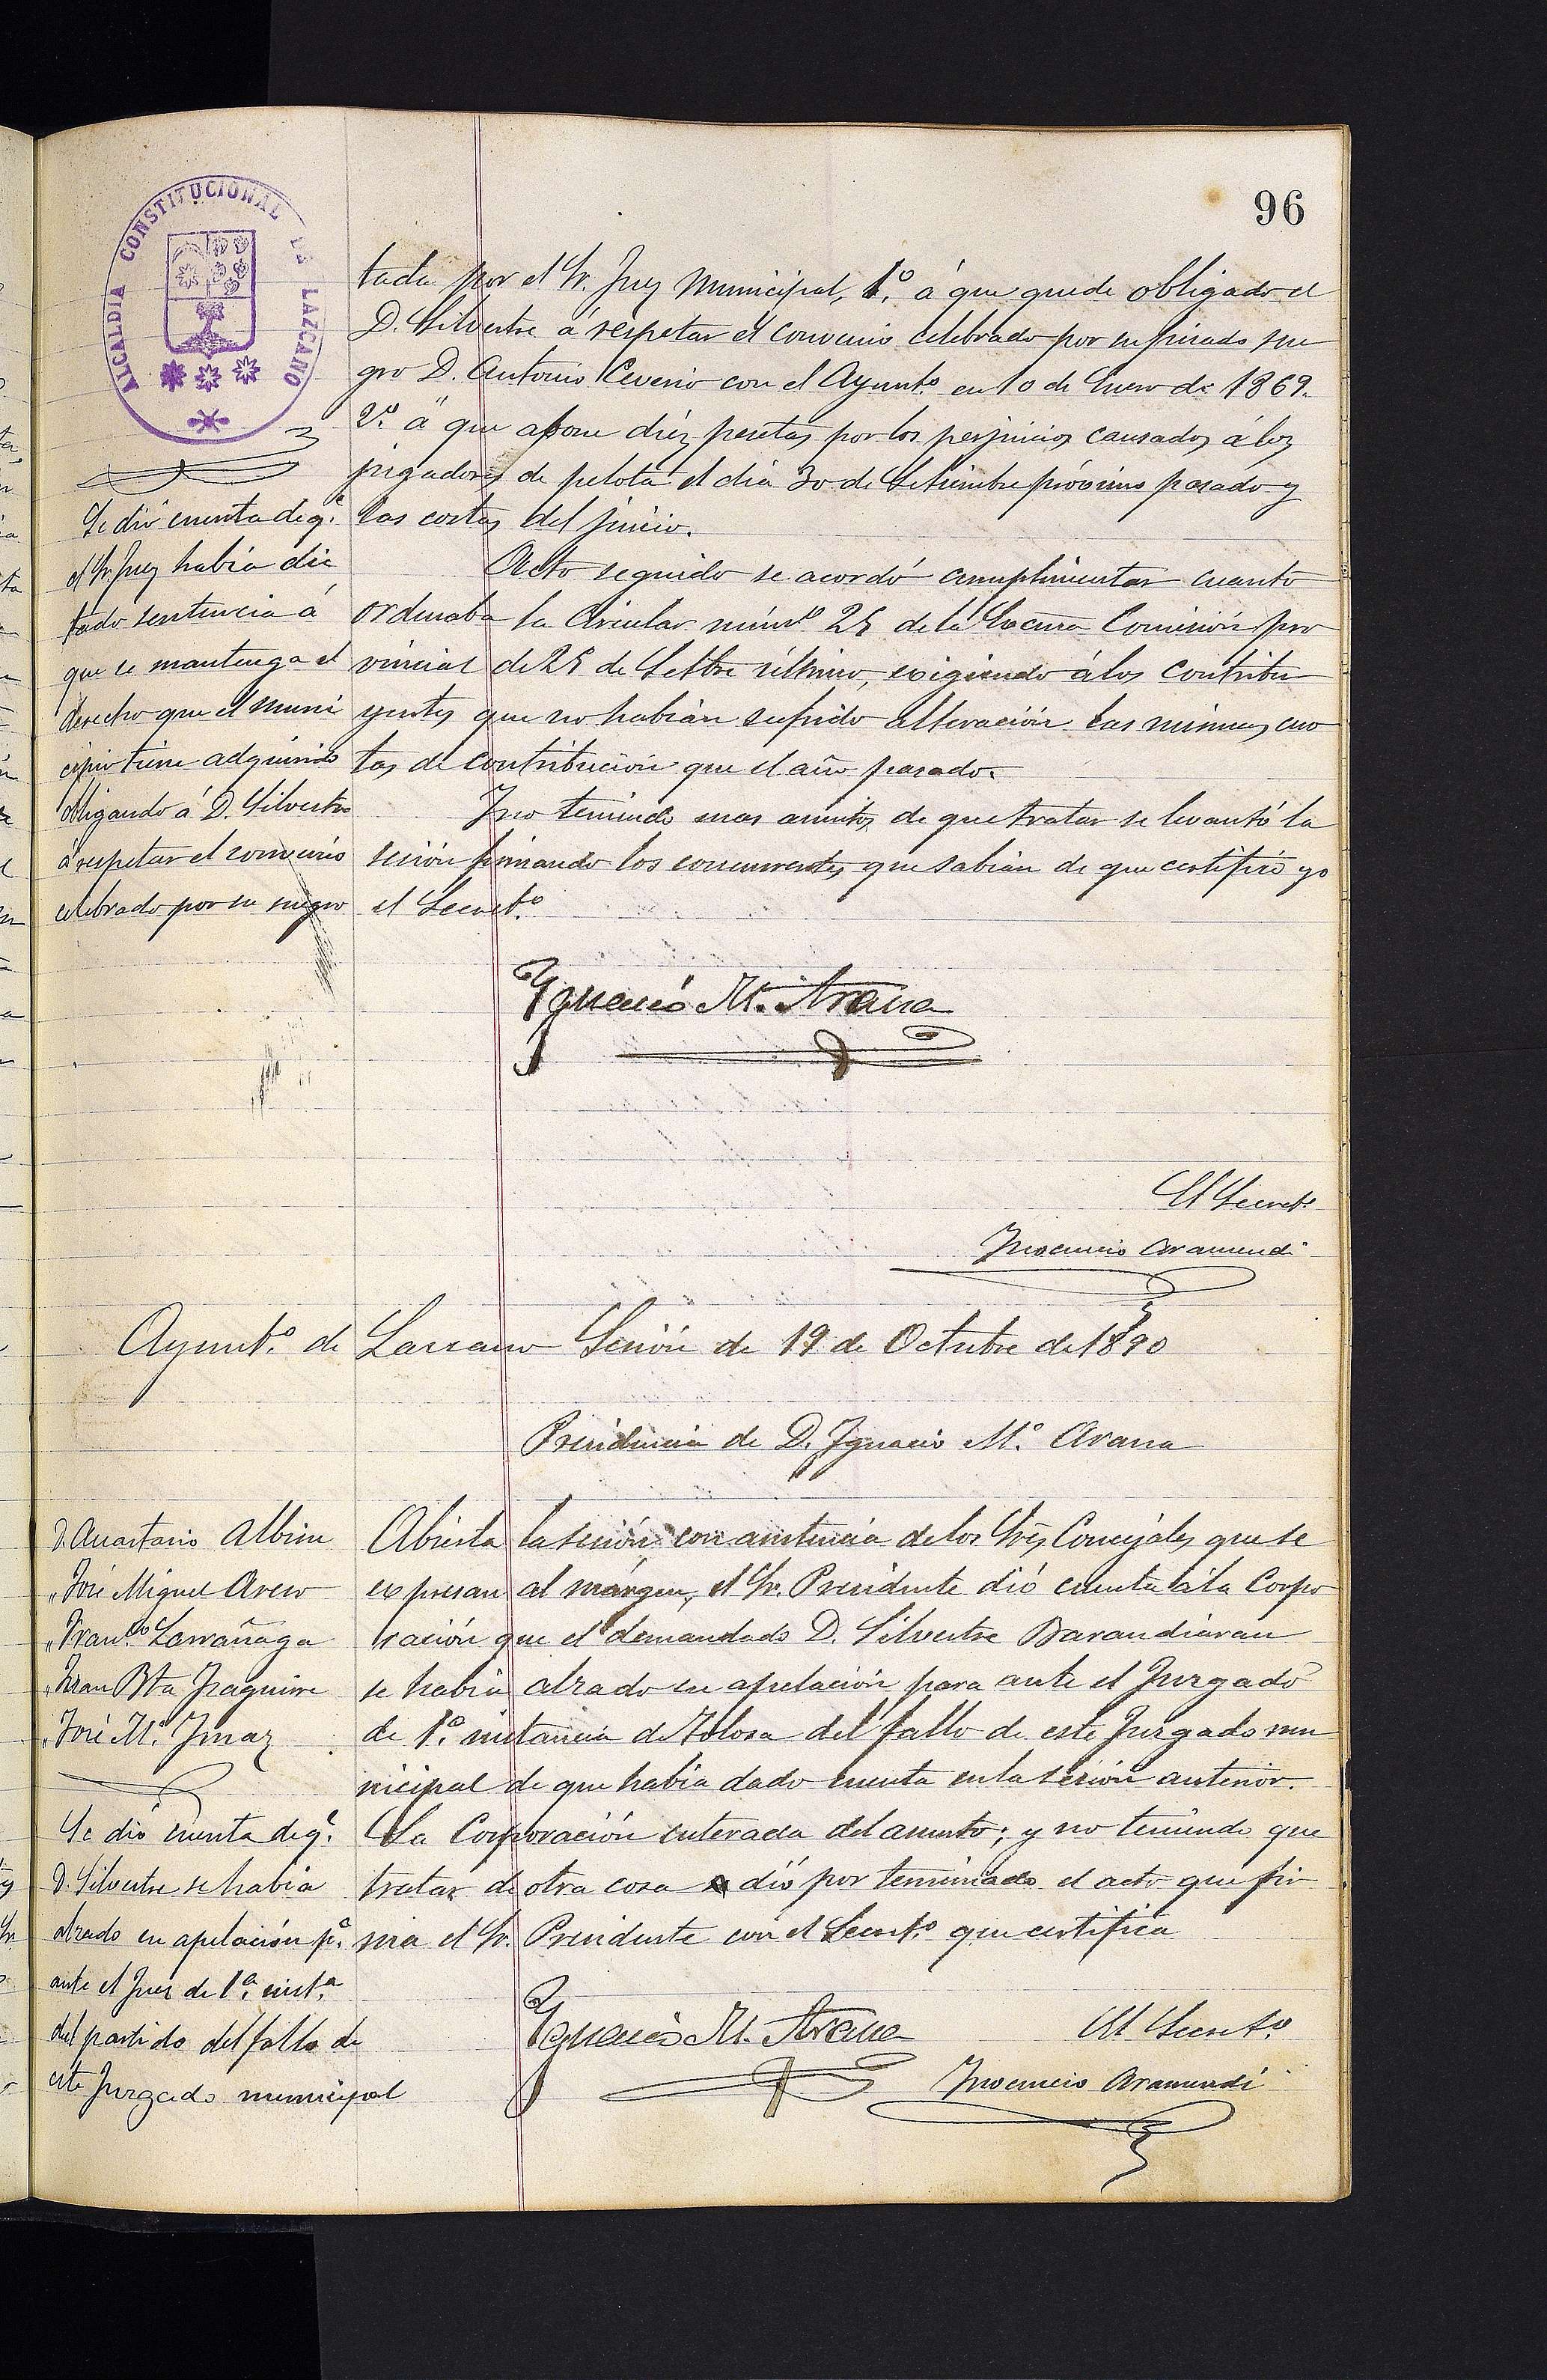 96
ALCALDIA CONSTITUCIONAL DE LAZCANO
tada por el Sr. Juez Municipal, 1.º á que quede obligado el
D. Silvestre á respetar el convenio celebrado por su finado sue
gro D. Antonio Ceverio con el Ayunt.º en 10 de Enero de 1869.
2.º á que abone diéz pesetas por los perjuicios causados á los
jugadores de pelota el dia 30 de Setiembre próximo pasado y
las costas del juicio.
Acto seguido se acordó cumplimentar cuanto
ordenaba la Circular núm.º 25 de la Excma Comisión pro
vincial de 25 de Setbre último, exigiendo á los contribu
yentes que no habian sufrido alteración las mismas cuo
tas de contribución que el año pasado.
Y no teniendo mas asuntos de que tratar se levantó la
sesión firmando los concurrentes que sabian de que certifico yo
el Secret.º
Se dió cuenta de q.e
el Sr. Juez habia dic
tado sentencia á
que se mantenga el
derecho que el muni
cipio tiene adquirido
obligando á D. Silvestre
á respetar el convenio
celebrado por su suegro
Ygnacio M. Arana
El Secret.º
Inocencio Aramendi
Ayunt.º de Lazcano Sesión de 19 de Octubre de 1890
Presidencia de D. Ignacio M.ª Arana
D. Anastasio Albisu
" José Miguel Areso
" Fran.co Larrañaga
" Juan Bta Izaguirre
" José M.ª Imaz
Abierta la sesión con asistencia de los Sres Concejales que se
expresan al márgen, el Sr. Presidente dió cuenta á la Corpo
ración que el demandado D. Silvestre Barandiaran
se habia alzado en apelación para ante el Juzgado
de 1.ª instancia de Tolosa del fallo de este Juzgado mu
nicipal de que habia dado cuenta en la sesión anterior.
La Corporación enterada del asunto; y no teniendo que
tratar de otra cosa se dió por terminado el acto que fir
ma el Sr. Presidente con el Secret.º que certifica
Se dió cuenta de q.e
D. Silvestre se habia
alzado en apelación p.a
ante el Juez de 1.ª inst.a
del partido del fallo de
este Juzgado municipal
Ygnacio M. Arana
El Secret.º
Inocencio Aramendi